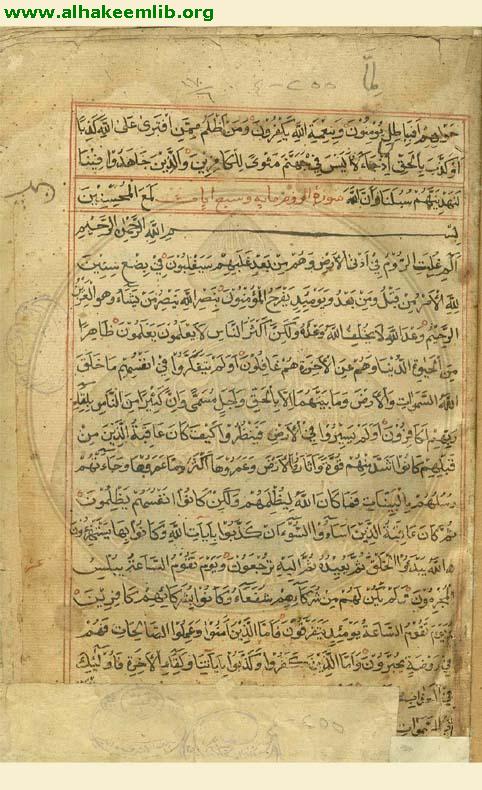 www.alhakeemlib.org
حولهم أفبالباطل يؤمنون وبنعمة الله يكفرون ومن أظلم ممن افترى على الله كذبا
أو كذب بالحق لما جاءه أليس في جهنم مثوى للكافرين والذين جاهدوا فينا
لنهدينهم سبلنا وإن الله لمع المحسنين
سورة الروم
بسم الله الرحمن الرحيم
الم غلبت الروم في أدنى الأرض وهم من بعد غلبهم سيغلبون في بضع سنين
لله الأمر من قبل ومن بعد ويومئذ يفرح المؤمنون بنصر الله ينصر من يشاء وهو العزيز
الرحيم وعد الله لا يخلف الله وعده ولكن أكثر الناس لا يعلمون يعلمون ظاهرا
من الحيوة الدنيا وهم عن الآخرة هم غافلون أولم يتفكروا في أنفسهم ما خلق
الله السموات والأرض وما بينهما إلا بالحق وأجل مسمى وإن كثيرا من الناس بلقاء
ربهم لكافرون أولم يسيروا في الأرض فينظروا كيف كان عاقبة الذين من
قبلهم كانوا أشد منهم قوة وأثاروا الأرض وعمروها أكثر مما عمروها وجاءتهم
رسلهم بالبينات فما كان الله ليظلمهم ولكن كانوا أنفسهم يظلمون
ثم كان عاقبة الذين أساءوا السوأى أن كذبوا بآيات الله وكانوا بها يستهزءون
الله يبدؤ الخلق ثم يعيده ثم إليه ترجعون ويوم تقوم الساعة يبلس
المجرمون ولم يكن لهم من شركائهم شفعاء وكانوا بشركائهم كافرين
ويوم تقوم الساعة يومئذ يتفرقون فأما الذين آمنوا وعملوا الصالحات فهم
في روضة يحبرون وأما الذين كفروا وكذبوا بآياتنا ولقاء الآخرة فأولئك